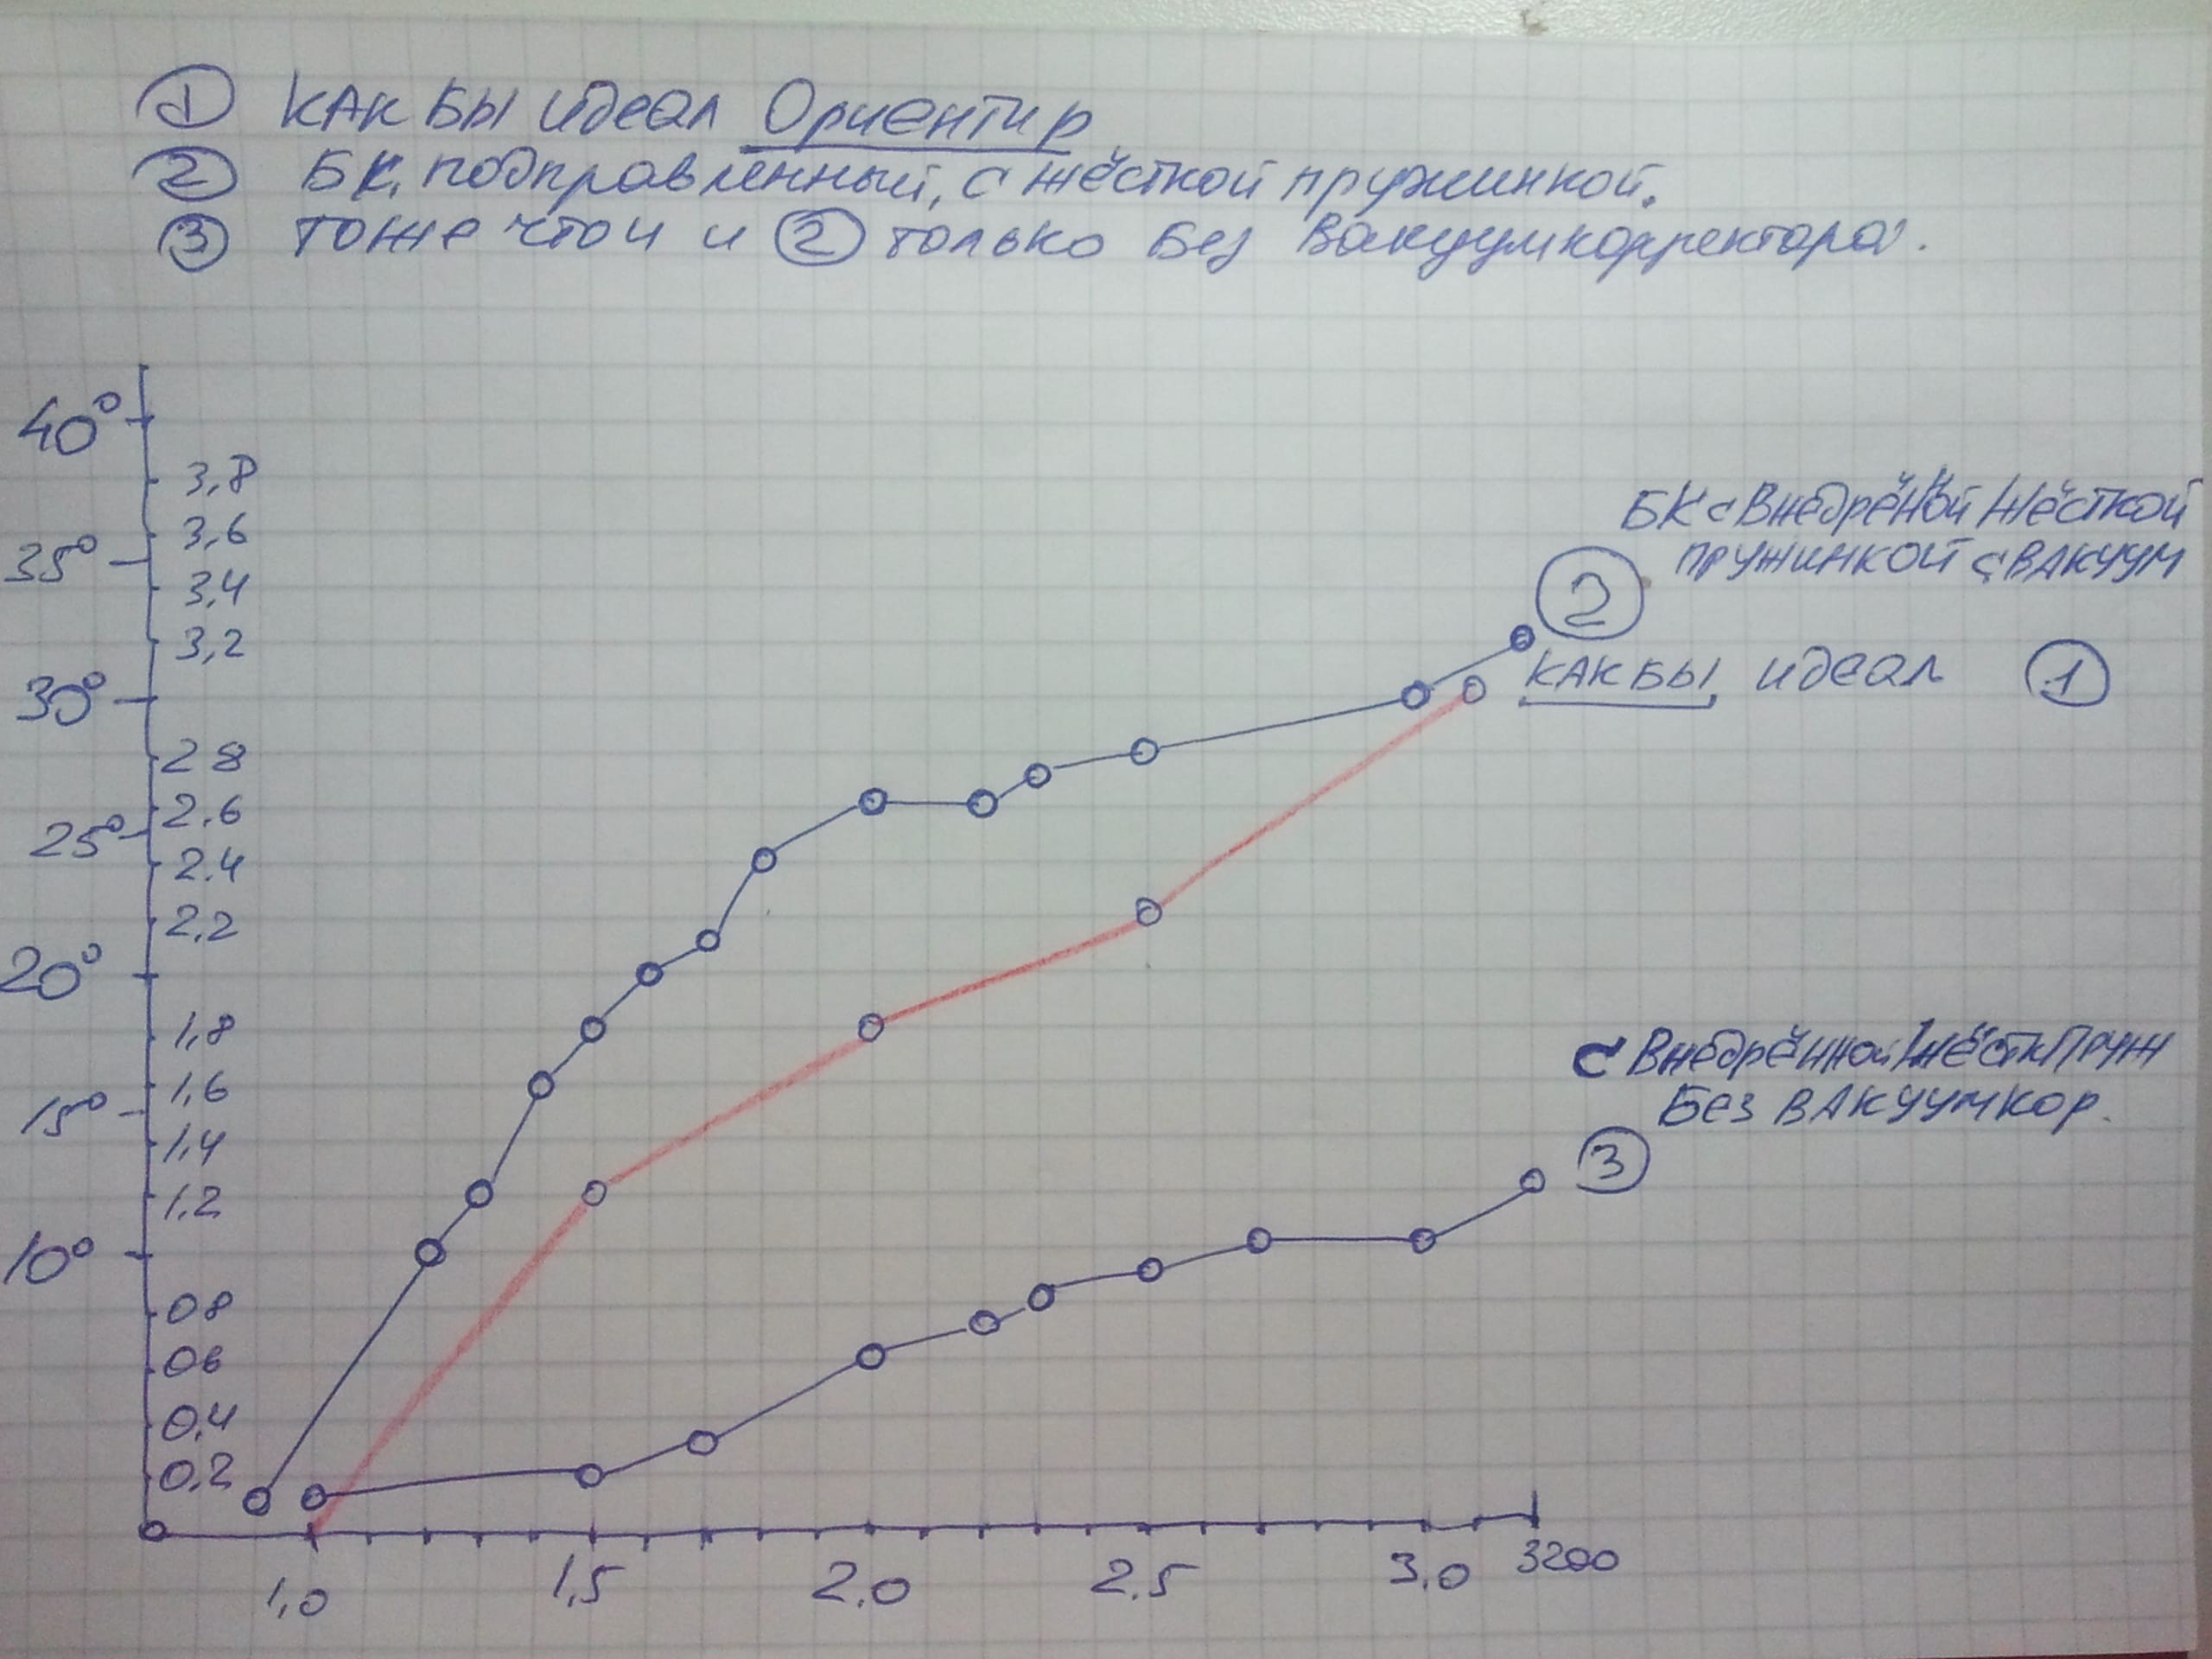 ① КАК БЫ идеал Ориентир
② БК, подправленный, с жёсткой пружинкой.
③ тоже что и и ② только без Вакуумкорректора.
40°
3,8
БК с Внедрёной Жёсткой
3,6
35°
пружинкой с ВАКУУМ
3,4
②
3,2
КАК БЫ, идеал ①
30°
2 8
2.6
25°
2.4
2,2
20°
1,8
с Внедрённой жёстк Пруж
1,6
15°
Без ВАКУУМКОР.
1,4
③
1.2
10°
08
06
0,4
0,2
1,0 1,5 2.0 2.5 3.0 3200